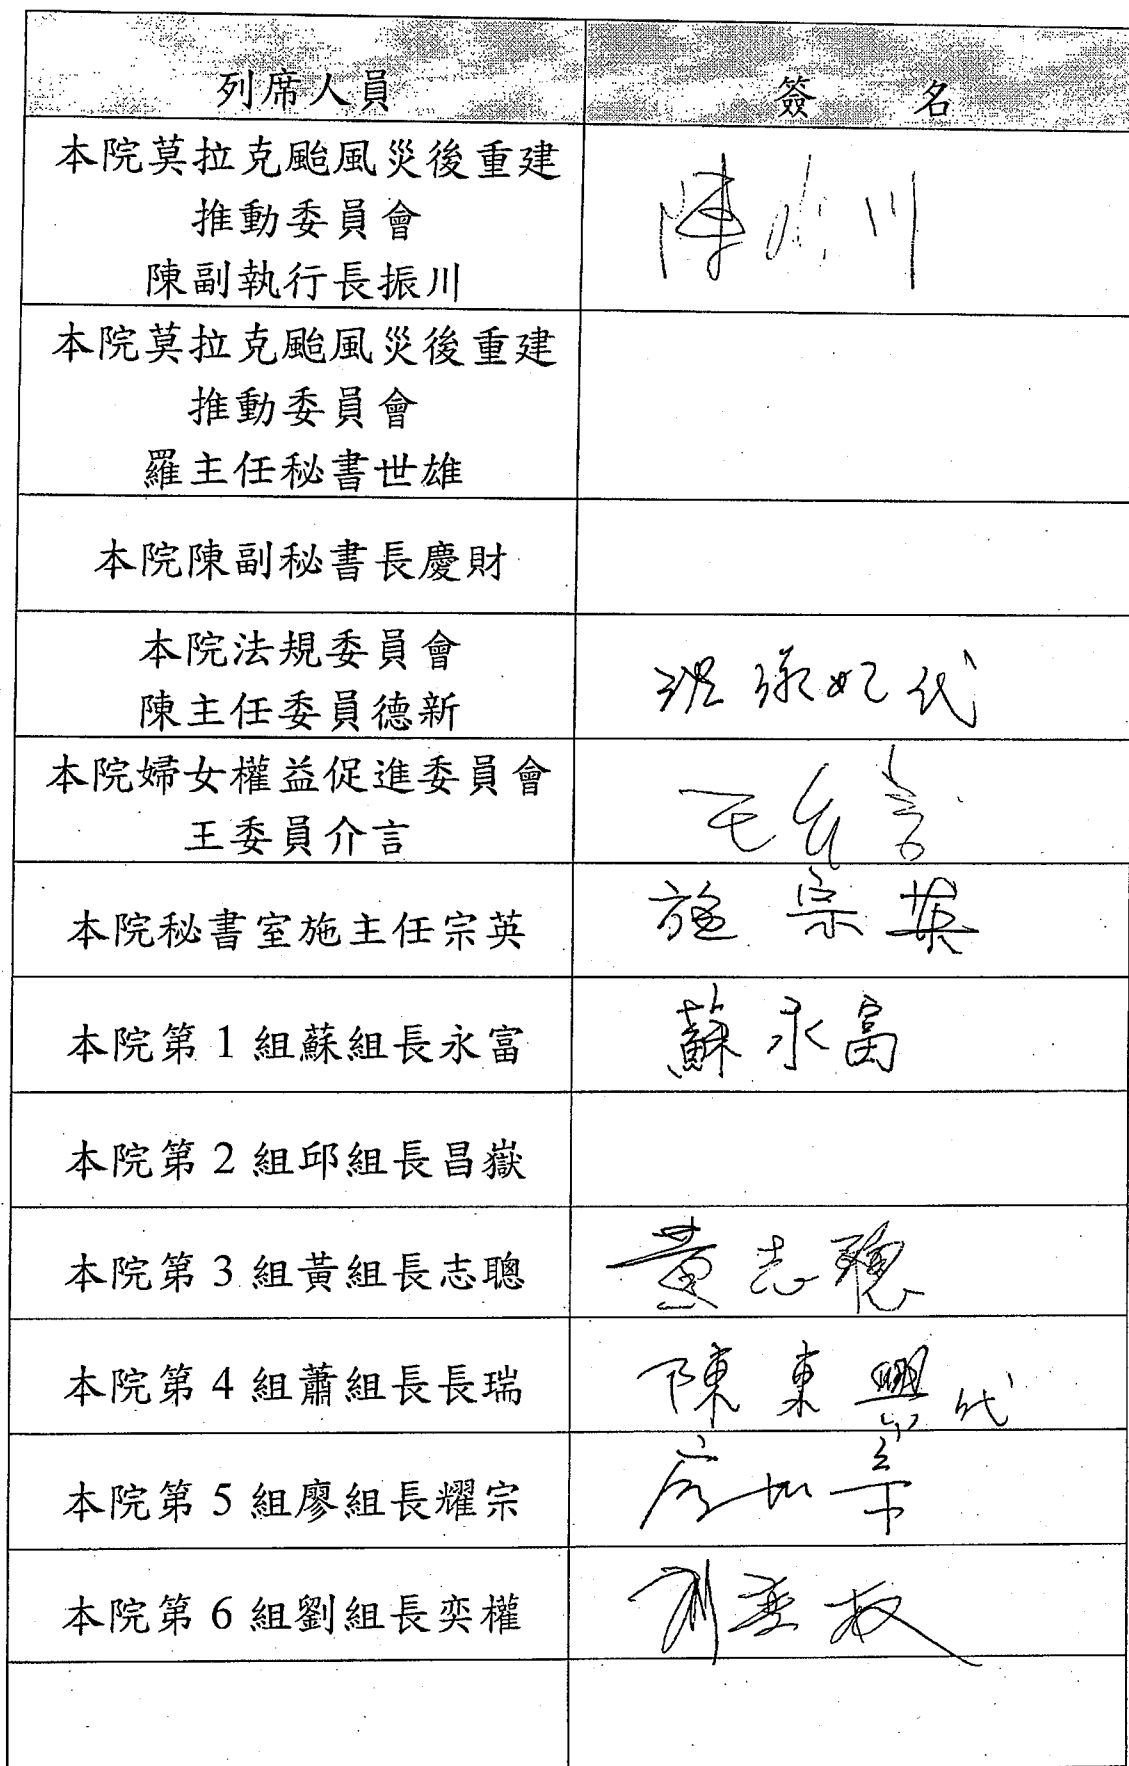 列席人員
簽 名
本院莫拉克颱風災後重建
推動委員會
陳副執行長振川
陳振川
本院莫拉克颱風災後重建
推動委員會
羅主任秘書世雄
本院陳副秘書長慶財
本院法規委員會
陳主任委員德新
代
本院婦女權益促進委員會
王委員介言
王介言
本院秘書室施主任宗英
施宗英
本院第1組蘇組長永富
蘇永富
本院第2組邱組長昌嶽
本院第3組黃組長志聰
黃志聰
本院第4組蕭組長長瑞
陳東興代
本院第5組廖組長耀宗
廖耀宗
本院第6組劉組長奕權
劉奕權